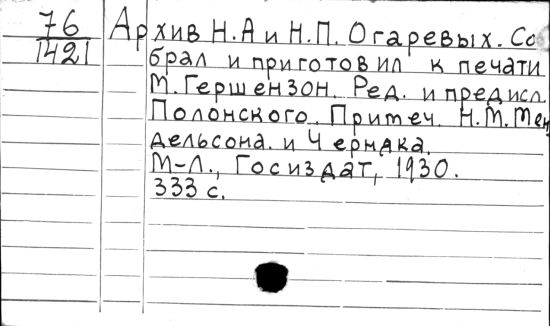 76
1421
Архив Н.А и Н.П. Огаревых. Со
брал и приготовил к печати
М. Гершензон. Ред. и предисл.
Полонского. Притеч. Н.М. Мен
дельсона. и Черняка.
М-Л., Госиздат, 1930.
333 с.